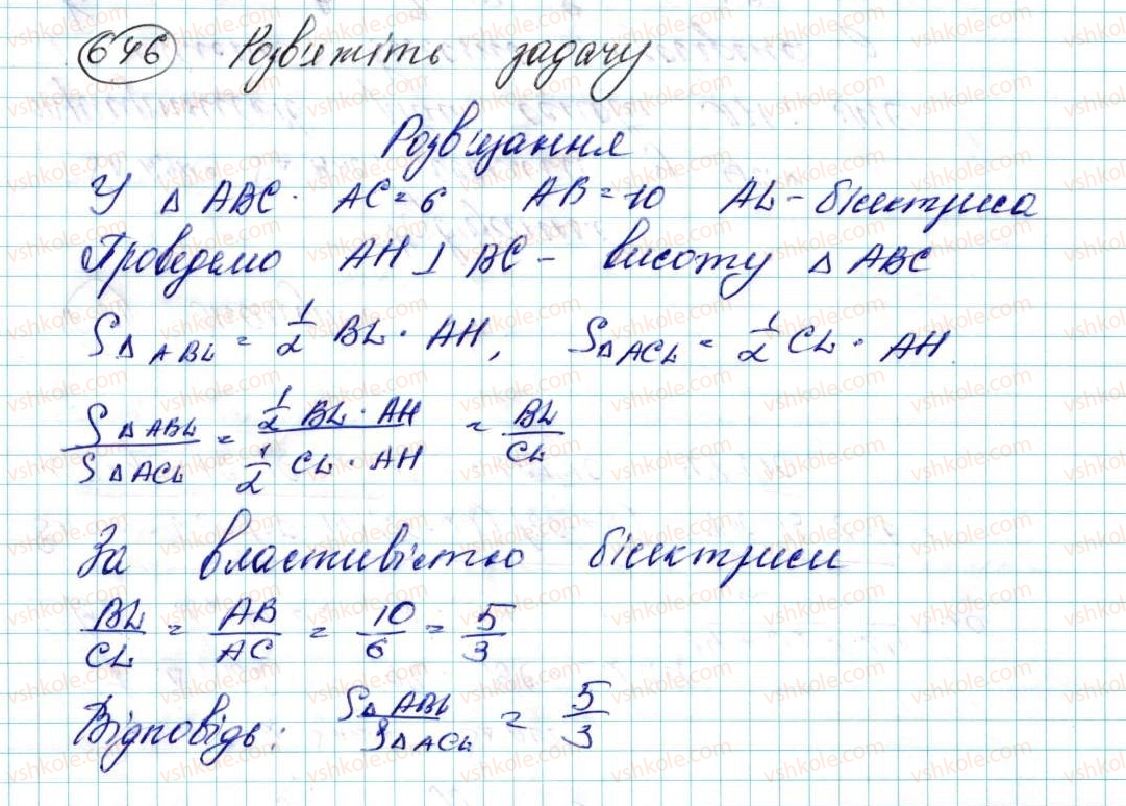 646 Розв'яжіть задачу
Розв'язання
У △ABC. AC = 6 AB = 10 AL - бісектриса
Проведемо AH ⊥ BC - висоту △ABC
S△ABL = 1/2 BL · AH, S△ACL = 1/2 CL · AH.
S△ABL / S△ACL = (1/2 BL · AH) / (1/2 CL · AH) = BL / CL
За властивістю бісектриси
BL / CL = AB / AC = 10 / 6 = 5 / 3
Відповідь: S△ABL / S△ACL = 5 / 3
vshkole.com